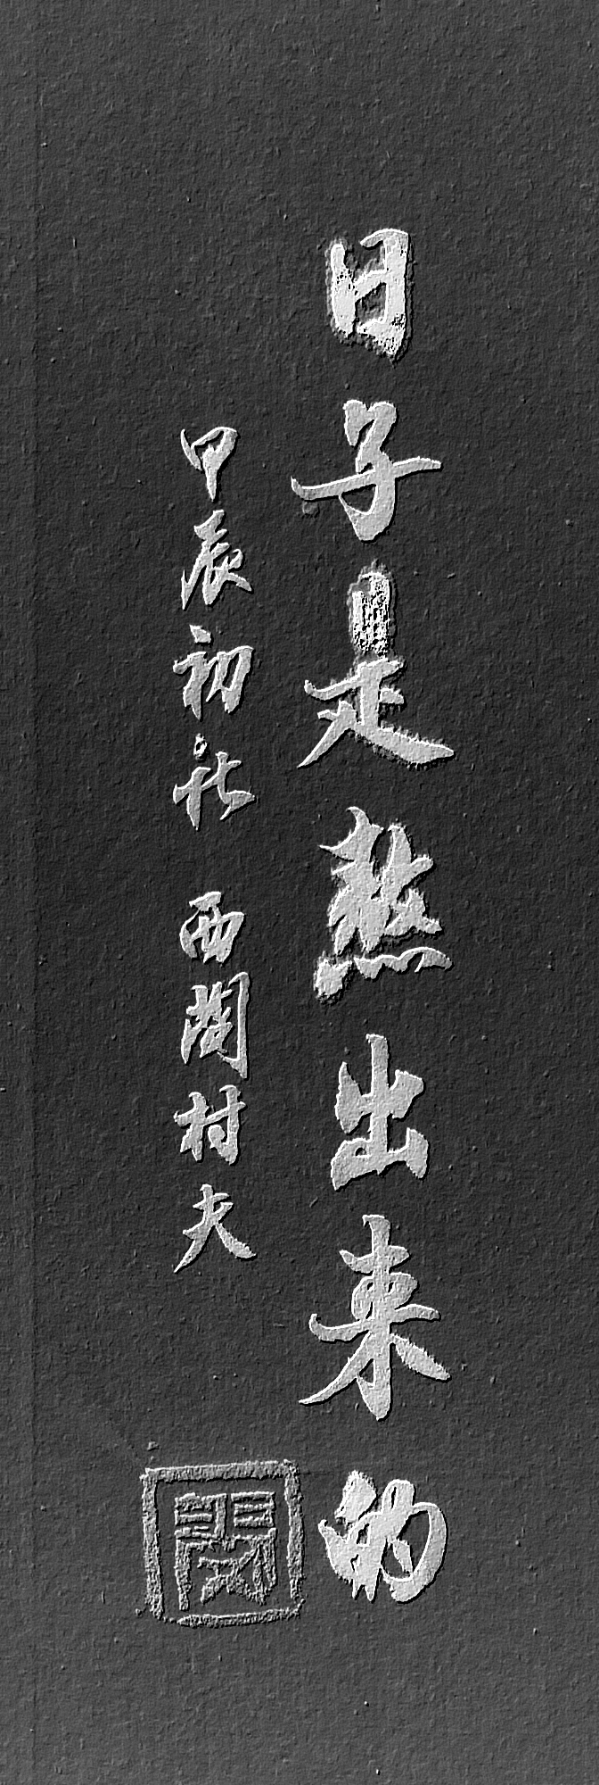 日子是熬出来的
甲辰初秋 西 村夫